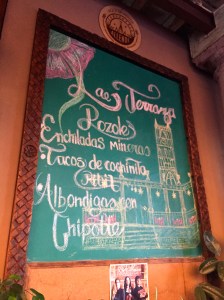 Las Terraza
Pozole
Enchiladas Mineras
Tacos de cochinita
Pibil
Albondigas con
Chipotle